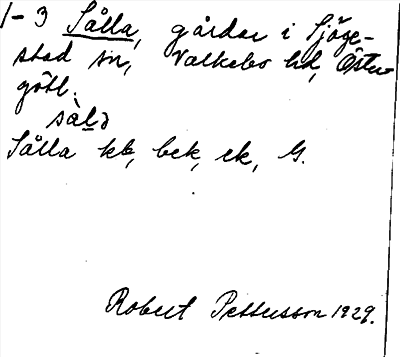 1-3 Sålla, gårdar i Sjöge-
stad sn, Valkebo hd, Öster-
götl.
sàlə
Sålla kb, bek, ek, G.
Robert Pettersson 1929.